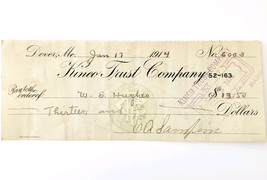 Dover, Me. Jan 17 1914 No.
Kineo Trust Company 52-163
Pay to the
order of W. E. Hughes $ 13.50
Thirteen and Dollars